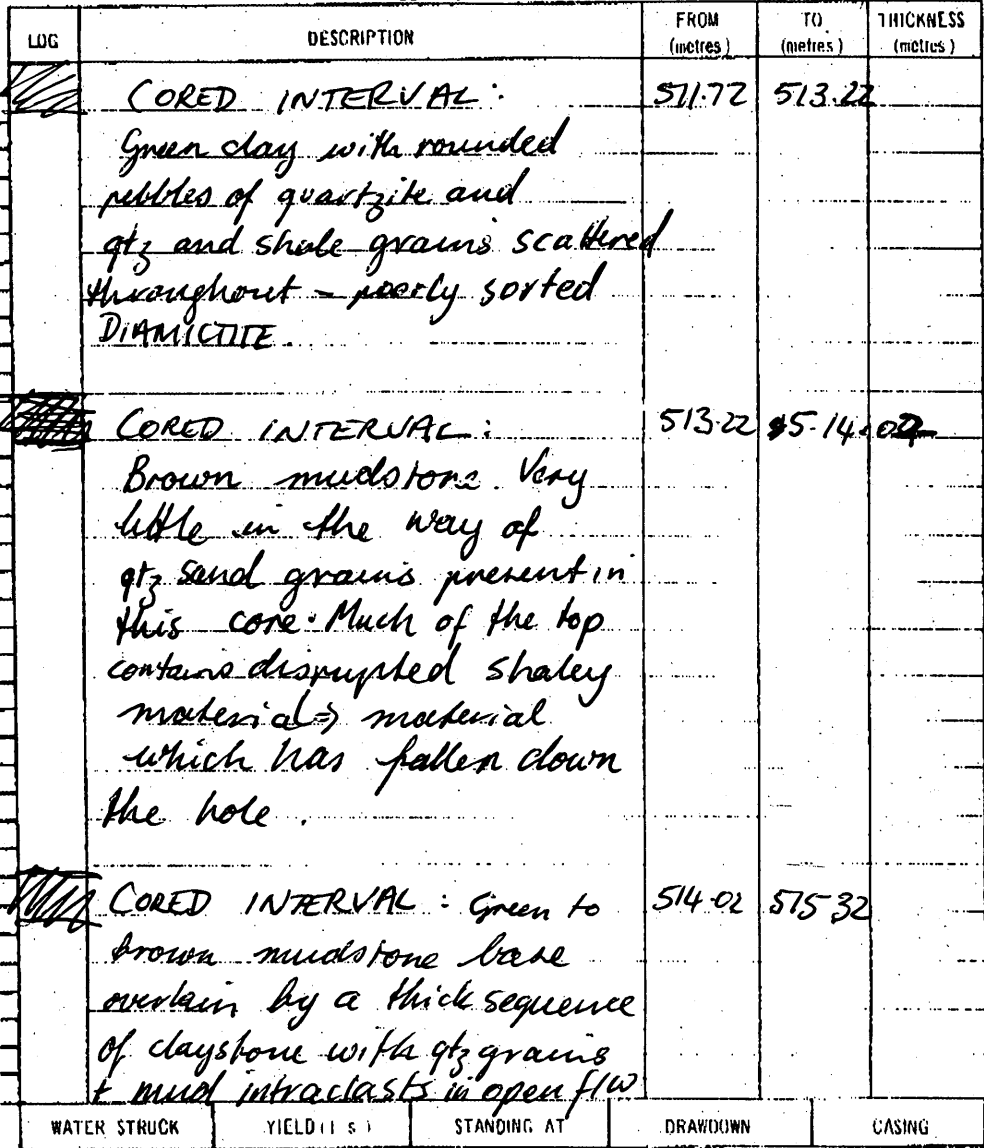 LOG DESCRIPTION FROM (metres) TO (metres) THICKNESS (metres)
CORED INTERVAL: 511.72 513.22
Green clay with rounded
pebbles of quartzite and
qtz and shale grains scattered
throughout - poorly sorted
DIAMICTITE.
CORED INTERVAL: 513.22 514.02
Brown mudstone. Very
little in the way of
qtz sand grains present in
this core. Much of the top
contains disrupted shaley
material => material
which has fallen down
the hole.
CORED INTERVAL: Green to 514.02 515.32
brown mudstone base
overlain by a thick sequence
of claystone with qtz grains
+ mud intraclasts in open f/w
WATER STRUCK YIELD (l s) STANDING AT DRAWDOWN CASING